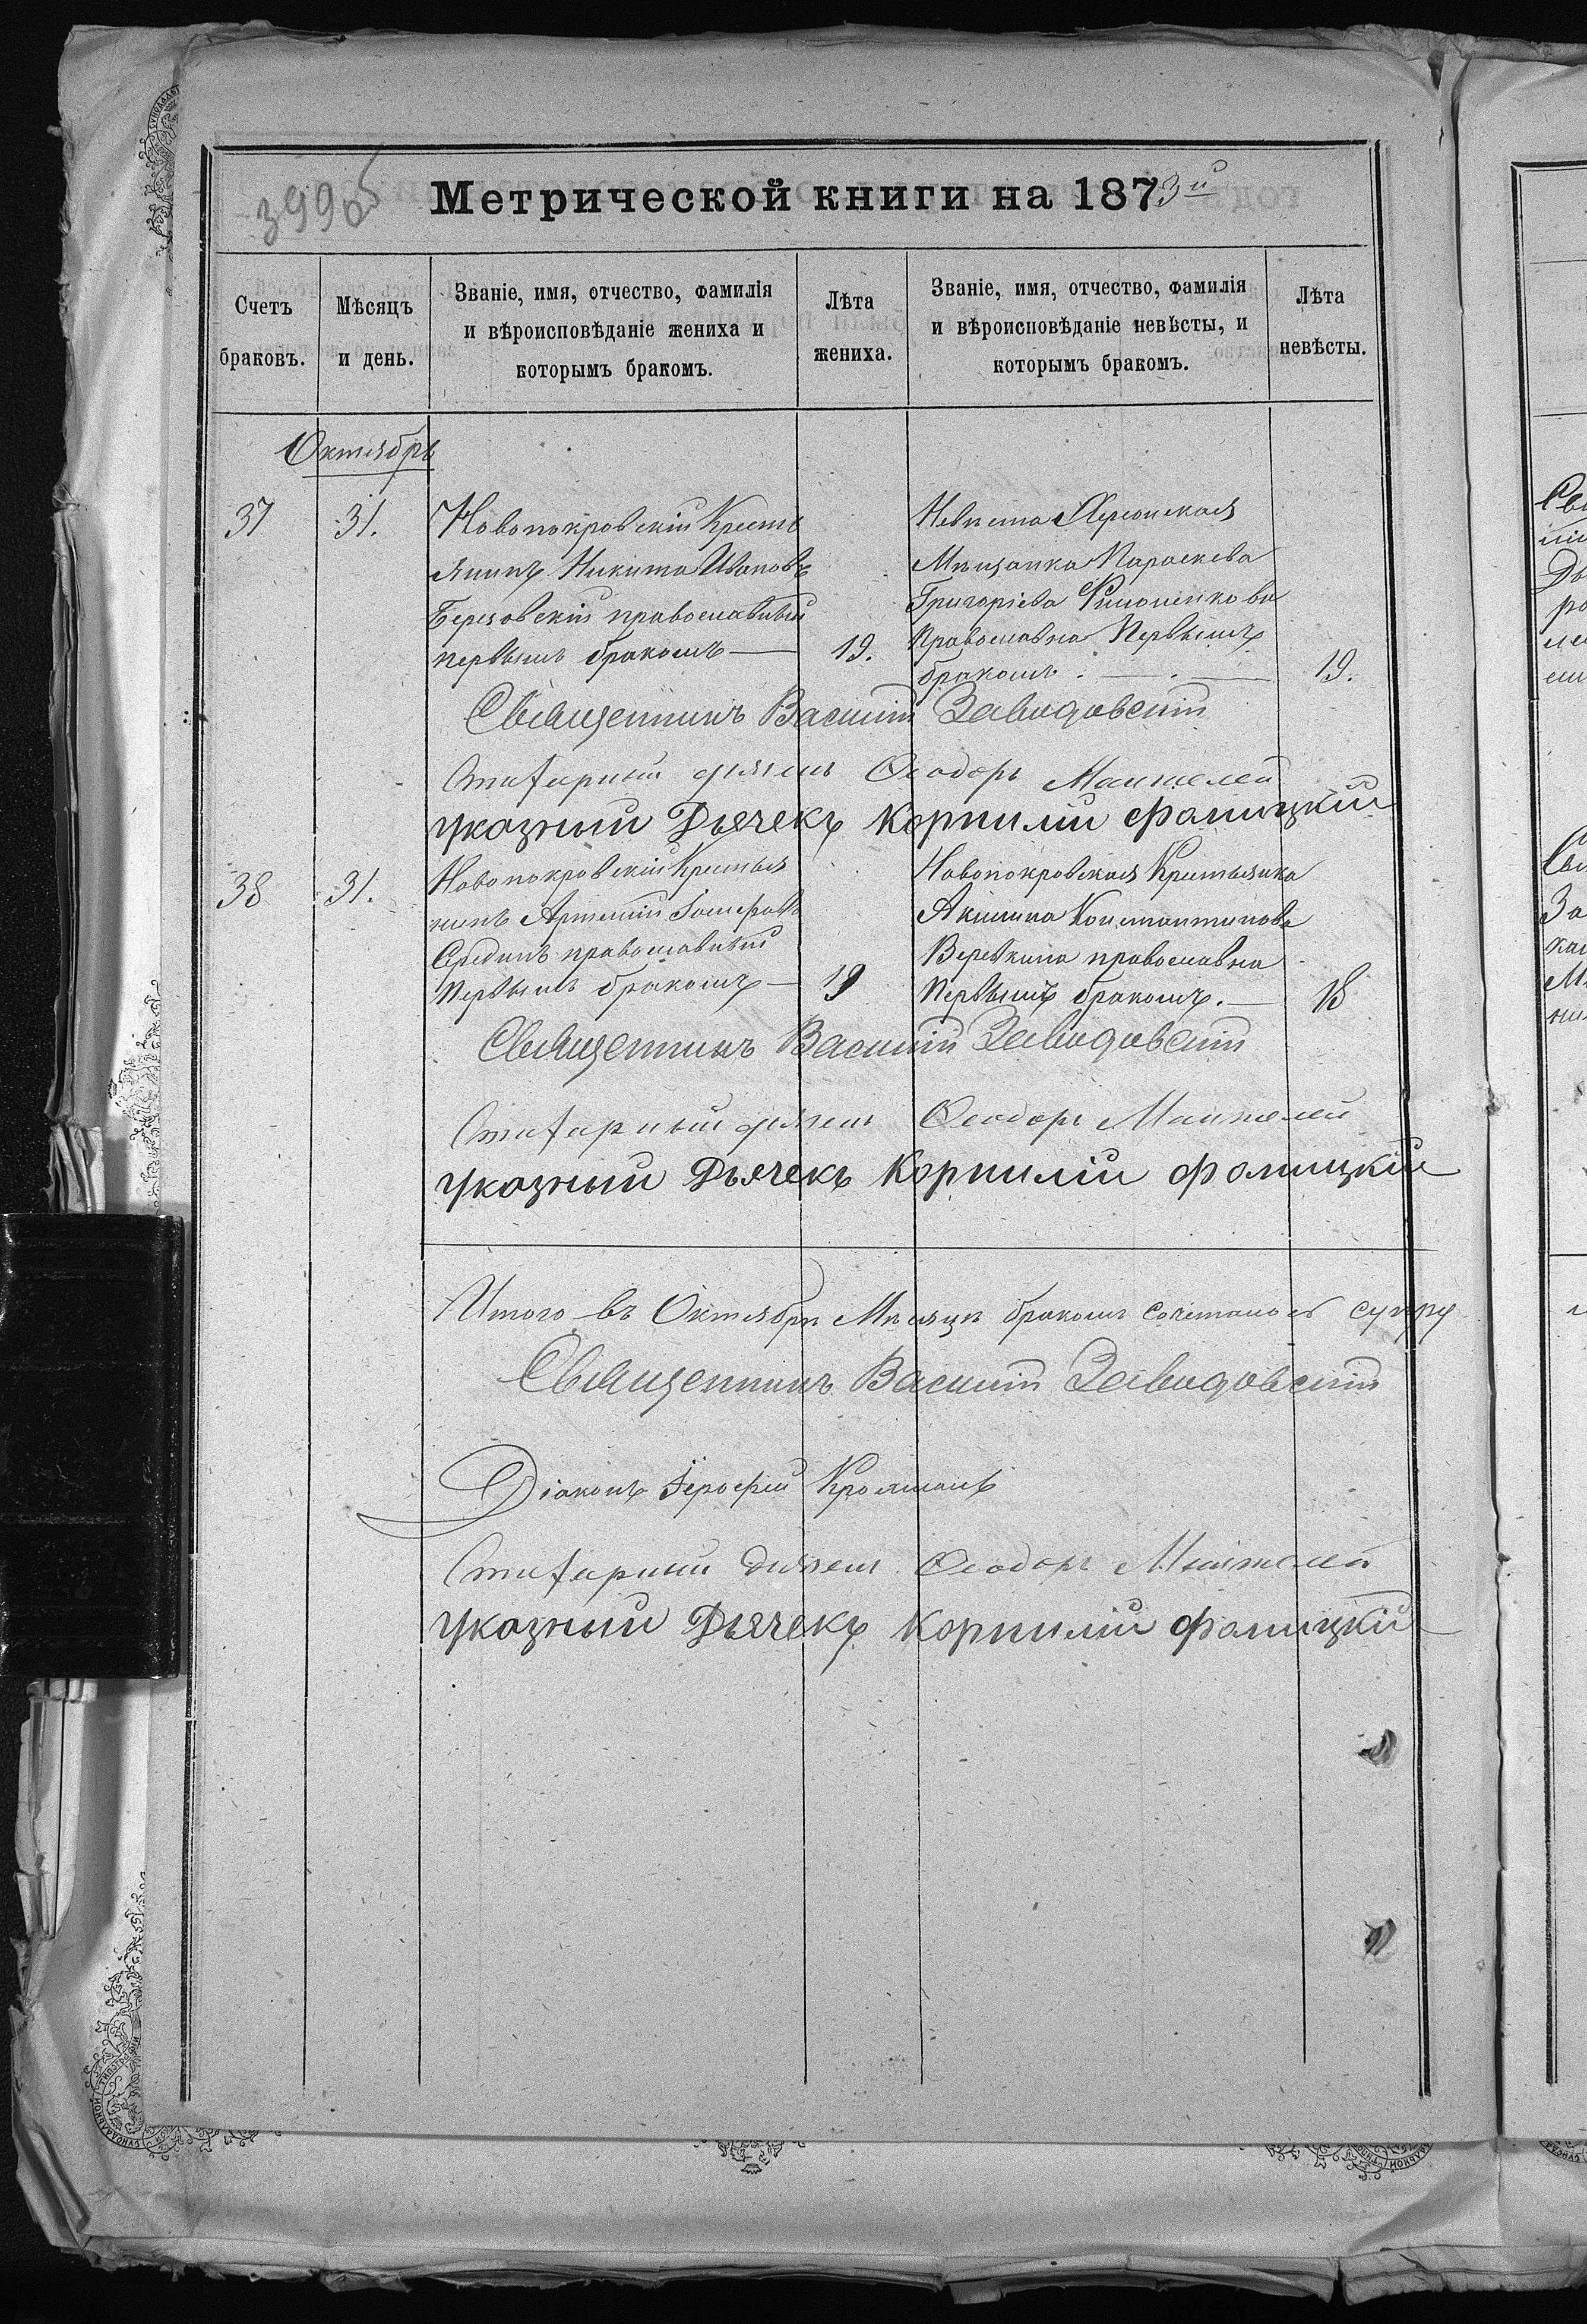 3996
Метрической книги на 1873й
Счетъ браковъ.
Мѣсяцъ и день.
Званіе, имя, отчество, фамилія
и вѣроисповѣданіе жениха и
которымъ бракомъ.
Лѣта жениха.
Званіе, имя, отчество, фамилія
и вѣроисповѣданіе невѣсты, и
которымъ бракомъ.
Лѣта невѣсты.
Октябрь
37
31.
Новопокровскій Кресть
янинъ Никита Ивановъ
Березовскій православный
первымъ бракомъ
19.
Невѣста Херсонская
Мѣщанка Параскева
Григоріева
Православна Первымъ
бракомъ.
19.
Священникъ Василій Завидовскій
Штатный Ѳеодоръ
указный Дьячекъ Корнилій Фолицкій
38
31.
Новопокровскій Крестья
нинъ Артемій Іосифовъ
Срединъ православный
Первымъ бракомъ
19
Новопокровская Крестьянка
Акилина Константинова
Веревкина православна
Первымъ бракомъ.
18
Священникъ Василій Завидовскій
Ѳеодоръ
указный Дьячекъ Корнилій Фолицкій
Итого въ Октябрѣ Мѣсяцѣ бракомъ сочеталось супру
Священникъ Василій Завидовскій
Діаконъ Іероѳей
Ѳеодоръ
указный Дьячекъ Корнилій Фолицкій